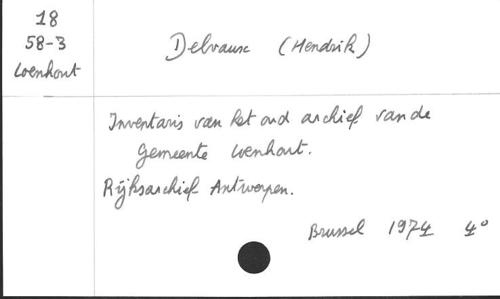 18
58-3
Loenhout
Delvaux (Hendrik)
Inventaris van het oud archief van de
Gemeente Loenhout.
Rijksarchief Antwerpen.
Brussel 1974 4°